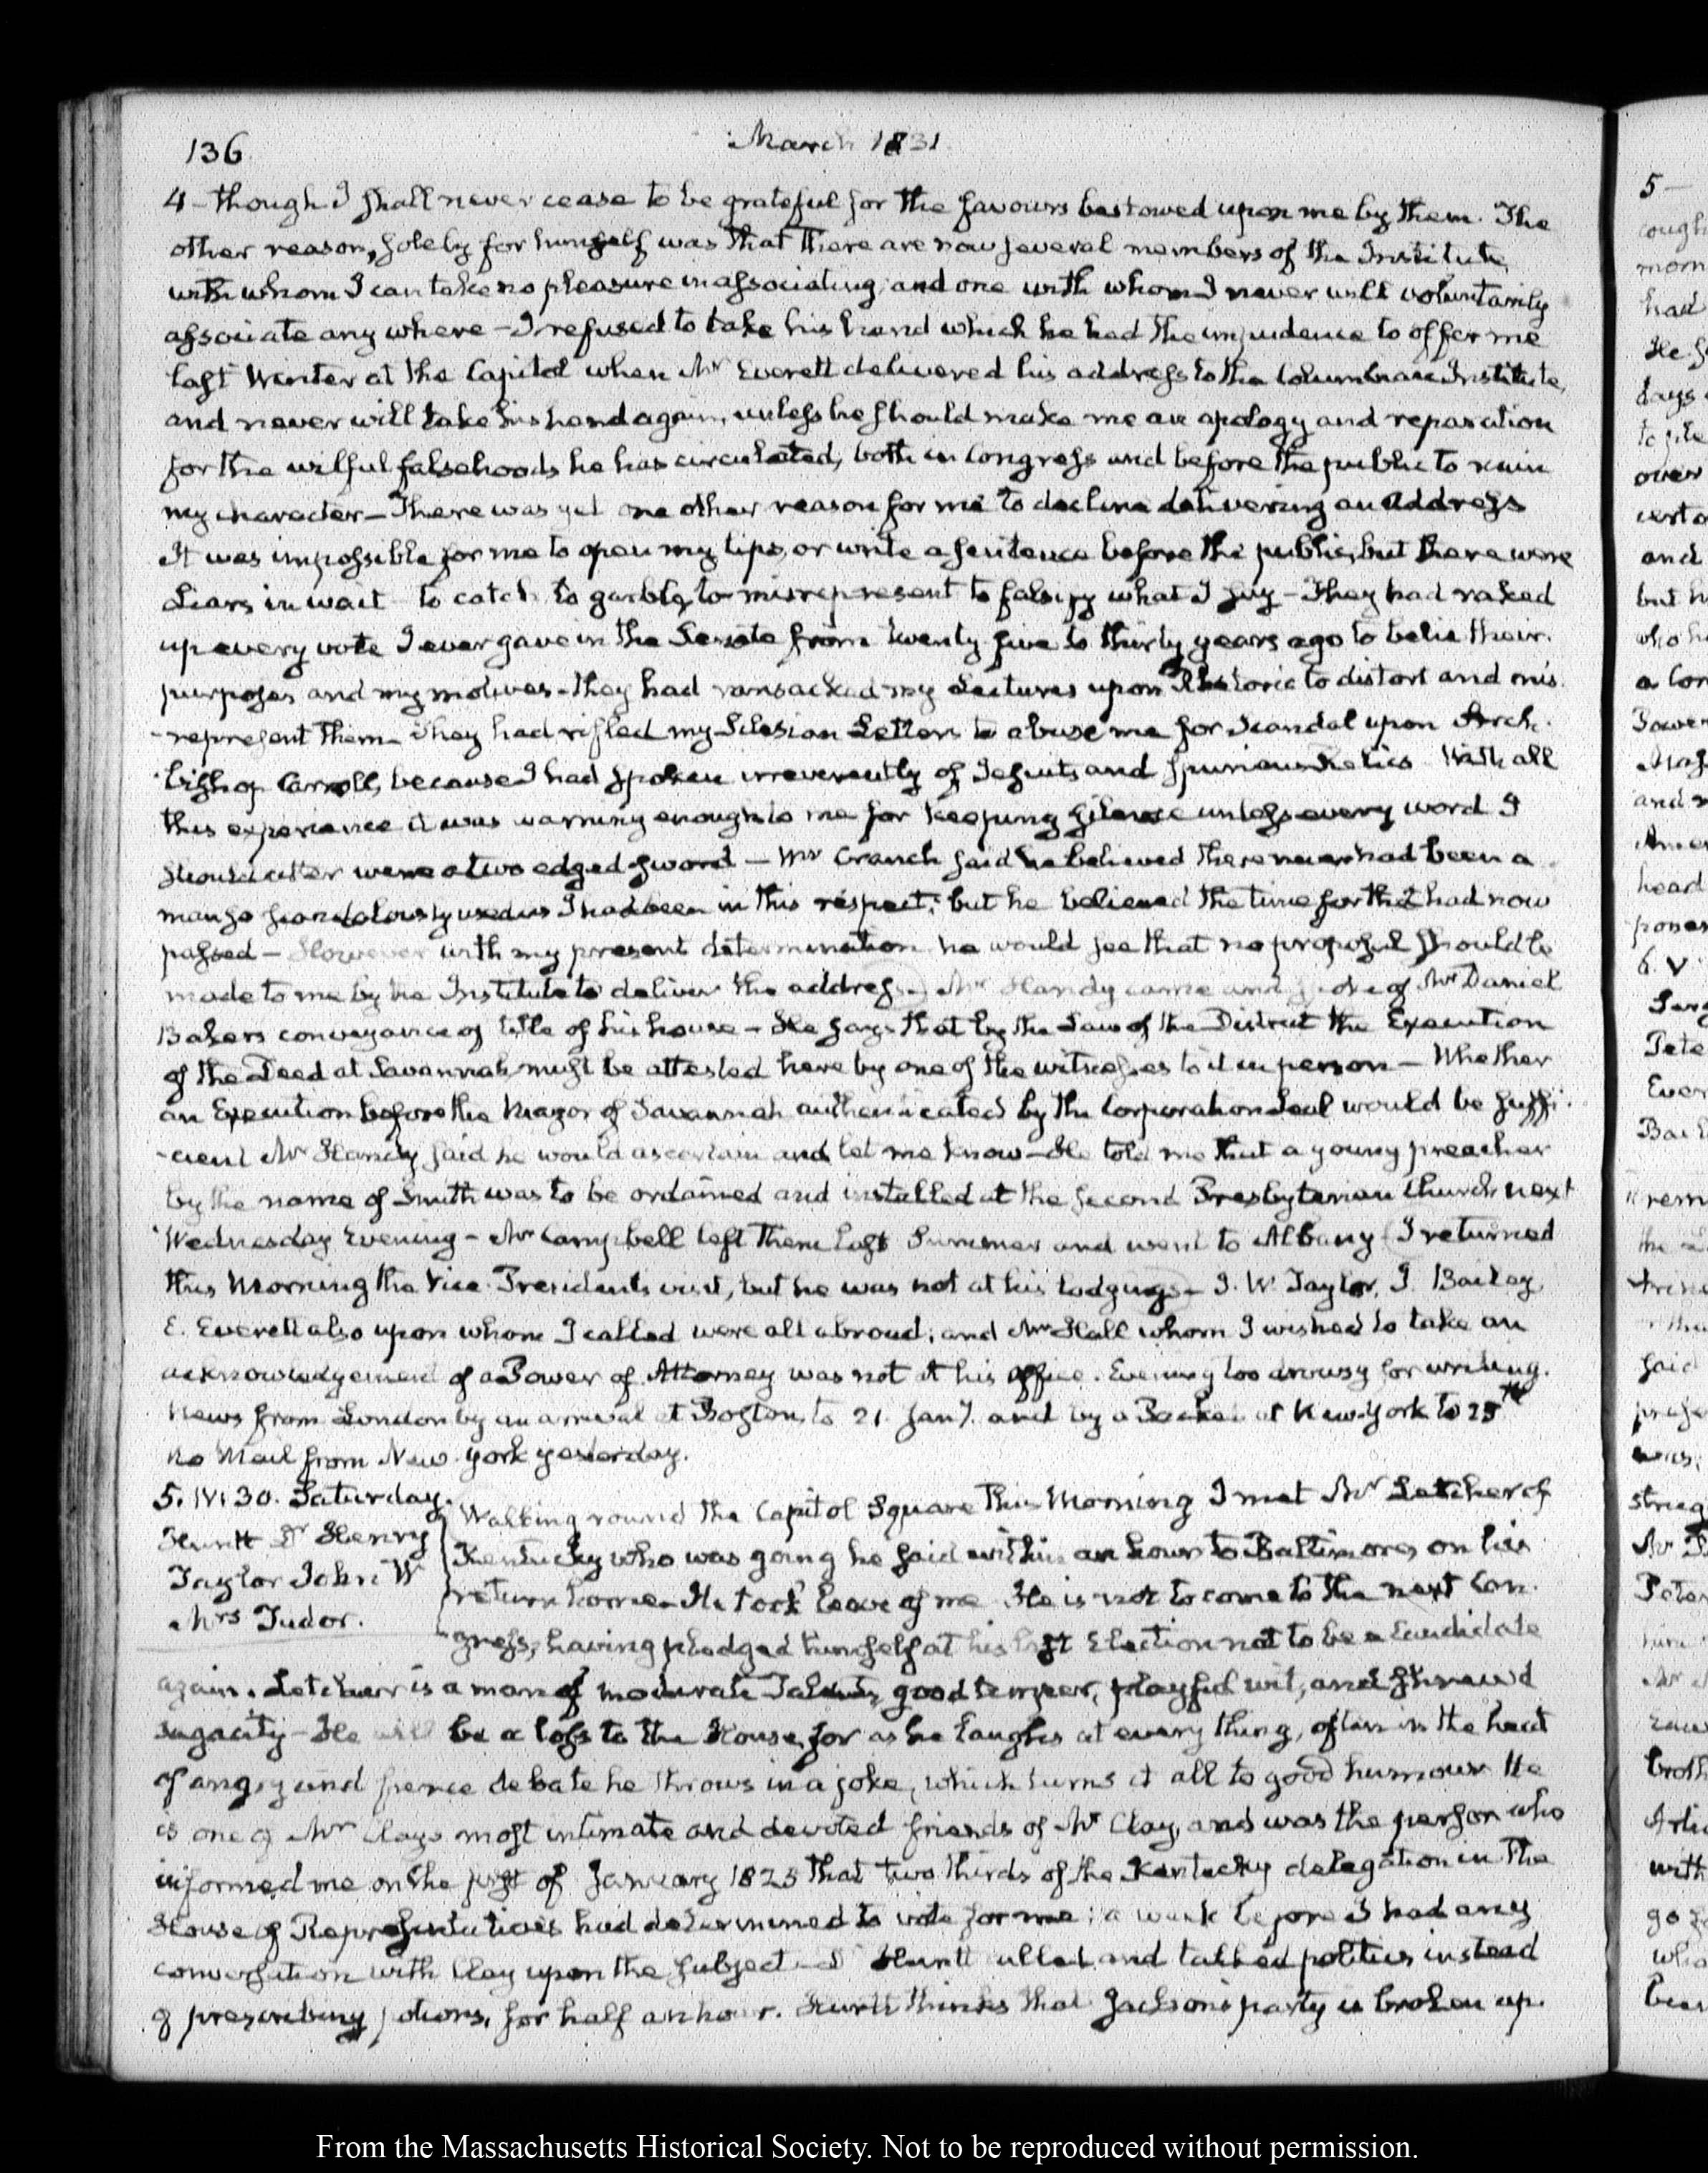 136
March 1831
4 - though I shall never cease to be grateful for the favours bestowed upon me by them. The
other reason, solely for himself was that there are now several members of the Institute,
with whom I can take no pleasure in associating; and one with whom I never will voluntarily
associate any where - I refused to take his hand which he had the impudence to offer me
last Winter at the Capitol when Mr Everett delivered his address to the Columbian Institute,
and never will take his hand again, unless he should make me an apology and reparation
for the wilful falsehoods he has circulated, both in Congress and before the public to ruin
my character - There was yet one other reason for me to decline delivering an Address
It was impossible for me to open my lips, or write a sentence before the public, but there were
Liars in wait to catch to garble, to misrepresent to falsify what I say - They had raked
up every vote I ever gave in the Senate from twenty five to thirty years ago to belie their
purposes and my motives - they had ransacked my Lectures upon Rhetoric to distort and mis-
-represent them - They had rifled my Silesian Letters to abuse me for Scandal upon Arch-
-bishop Carroll, because I had spoken irreverently of Jesuits and spurious Relics With all
this experience it was warning enough to me for keeping silence unless every word I
should utter were a two edged sword - Mr Cranch said he believed there never had been a
man so scandalously used as I had been in this respect; but he believed the time for that had now
passed - However with my present determination he would see that no proposal should be
made to me by the Institute to deliver the address - Mr Handy came and spoke of Mr Daniel
Bakers conveyance of title of his house - He says that by the Law of the District the Execution
of the Deed at Savannah must be attested here by one of the witnesses to it in person - Whether
an Execution before the Mayor of Savannah authenticated by the Corporation Seal would be suffi-
-cient Mr Handy said he would ascertain and let me know - He told me that a young preacher
by the name of Smith was to be ordained and installed at the second Presbyterian Church next
Wednesday Evening - Mr Campbell left them last Summer and went to Albany I returned
this Morning the Vice-Presidents visit, but he was not at his lodgings - J. W. Taylor, J. Bailey
E. Everett also upon whom I called were all abroad; and Mr Hall whom I wished to take an
acknowledgement of a Power of Attorney was not at his office. Evening too drowsy for writing.
News from London by an arrival at Boston, to 21. Jany. and by a Packet at New-York to 25th
No Mail from New-York yesterday.
5. IV: 30. Saturday.
Huntt Dr Henry
Taylor John W
Mrs Tudor.
Walking round the Capitol Square this Morning I met Mr Letcher of
Kentucky who was going he said within an hour to Baltimore, on his
return home - He took leave of me He is not to come to the next Con-
-gress, having pledged himself at his last Election not to be a Candidate
again. Letcher is a man of moderate Talents, good temper, playful wit, and shrewd
sagacity - He will be a loss to the House, for as he laughs at every thing, often in the heat
of angry and fierce debate he throws in a joke, which turns it all to good humour He
is one of Mr Clays most intimate and devoted friends of Mr Clay, and was the person who
informed me on the first of January 1825 that two thirds of the Kentucky delegation in the
House of Representatives had determined to vote for me; a week before I had any
conversation with Clay upon the subject - Dr Huntt called and talked politics instead
of prescribing potions, for half an hour. Huntt thinks that Jacksons party is broken up.
From the Massachusetts Historical Society. Not to be reproduced without permission.